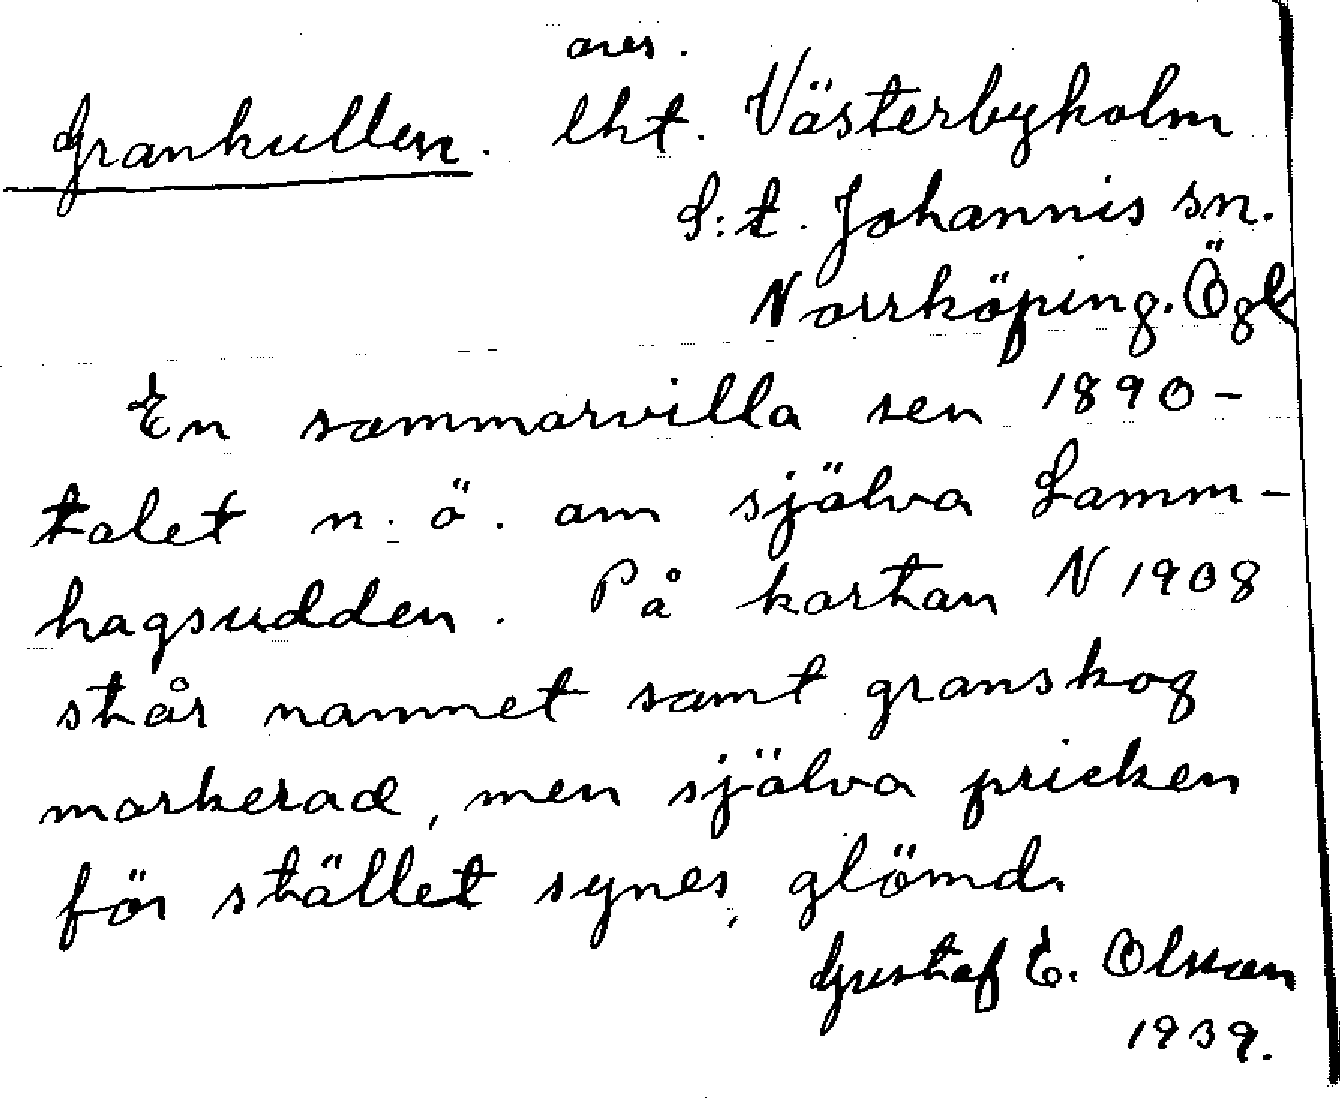 ones.
Grankullen. lht. Västerbyholm
S:t. Johannis sn.
Norrköping. Ögl
En sommarvilla sen 1890-
talet n. ö. om själva Lamm-
hagsudden. På kartan N 1908
står namnet samt granskog
markerad, men själva pricken
för stället synes, glömd.
Gustaf E. Olsson
1939.